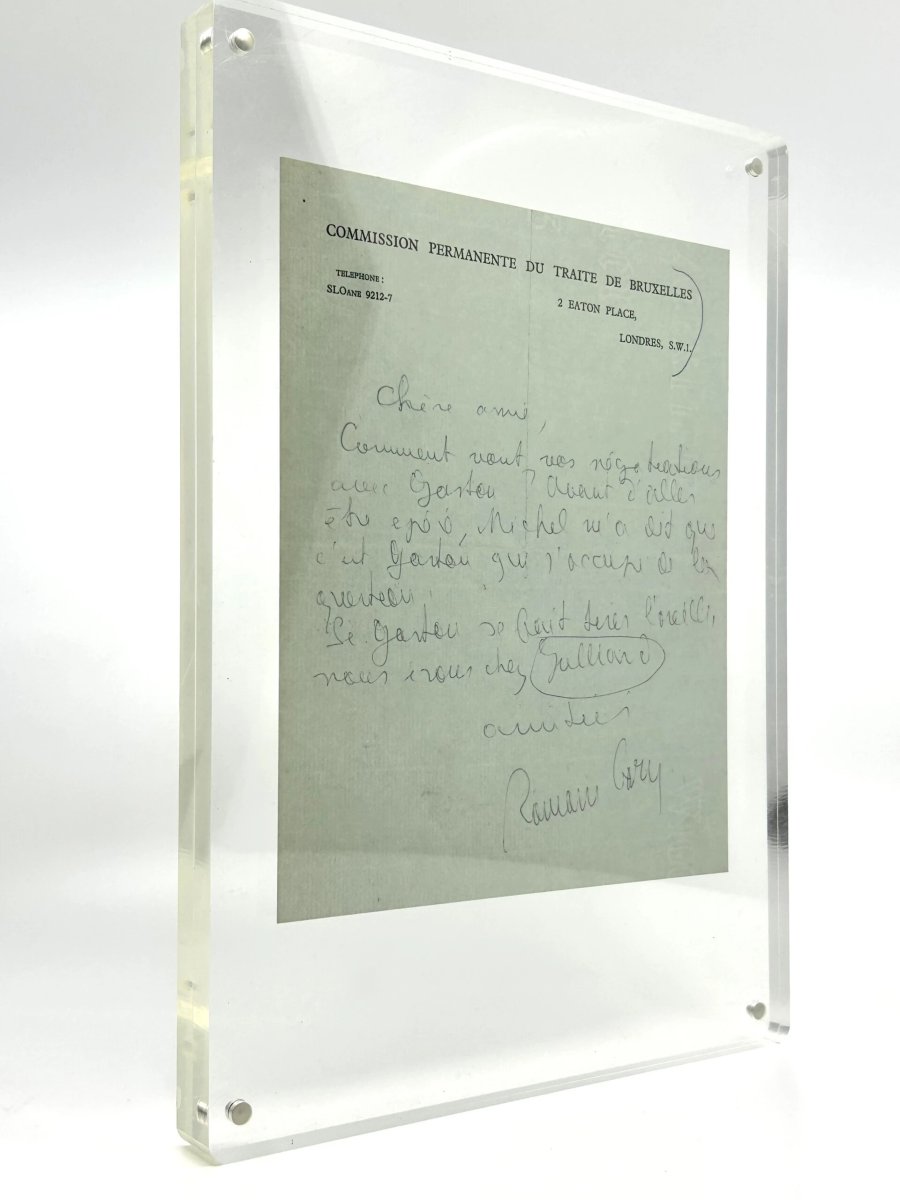 COMMISSION PERMANENTE DU TRAITE DE BRUXELLES
TELEPHONE :
SLOANE 9212-7
2 EATON PLACE,
LONDRES, S.W.1.
Chère amie,
Comment vont vos négotiations
avec Gaston ? Avant d'aller
être opéré, Michel m'a dit que
c'est Gaston qui s'occupe de la
question.
Si Gaston se fait tirer l'oreille,
nous irons chez Julliard
amitiés
Romain Gary